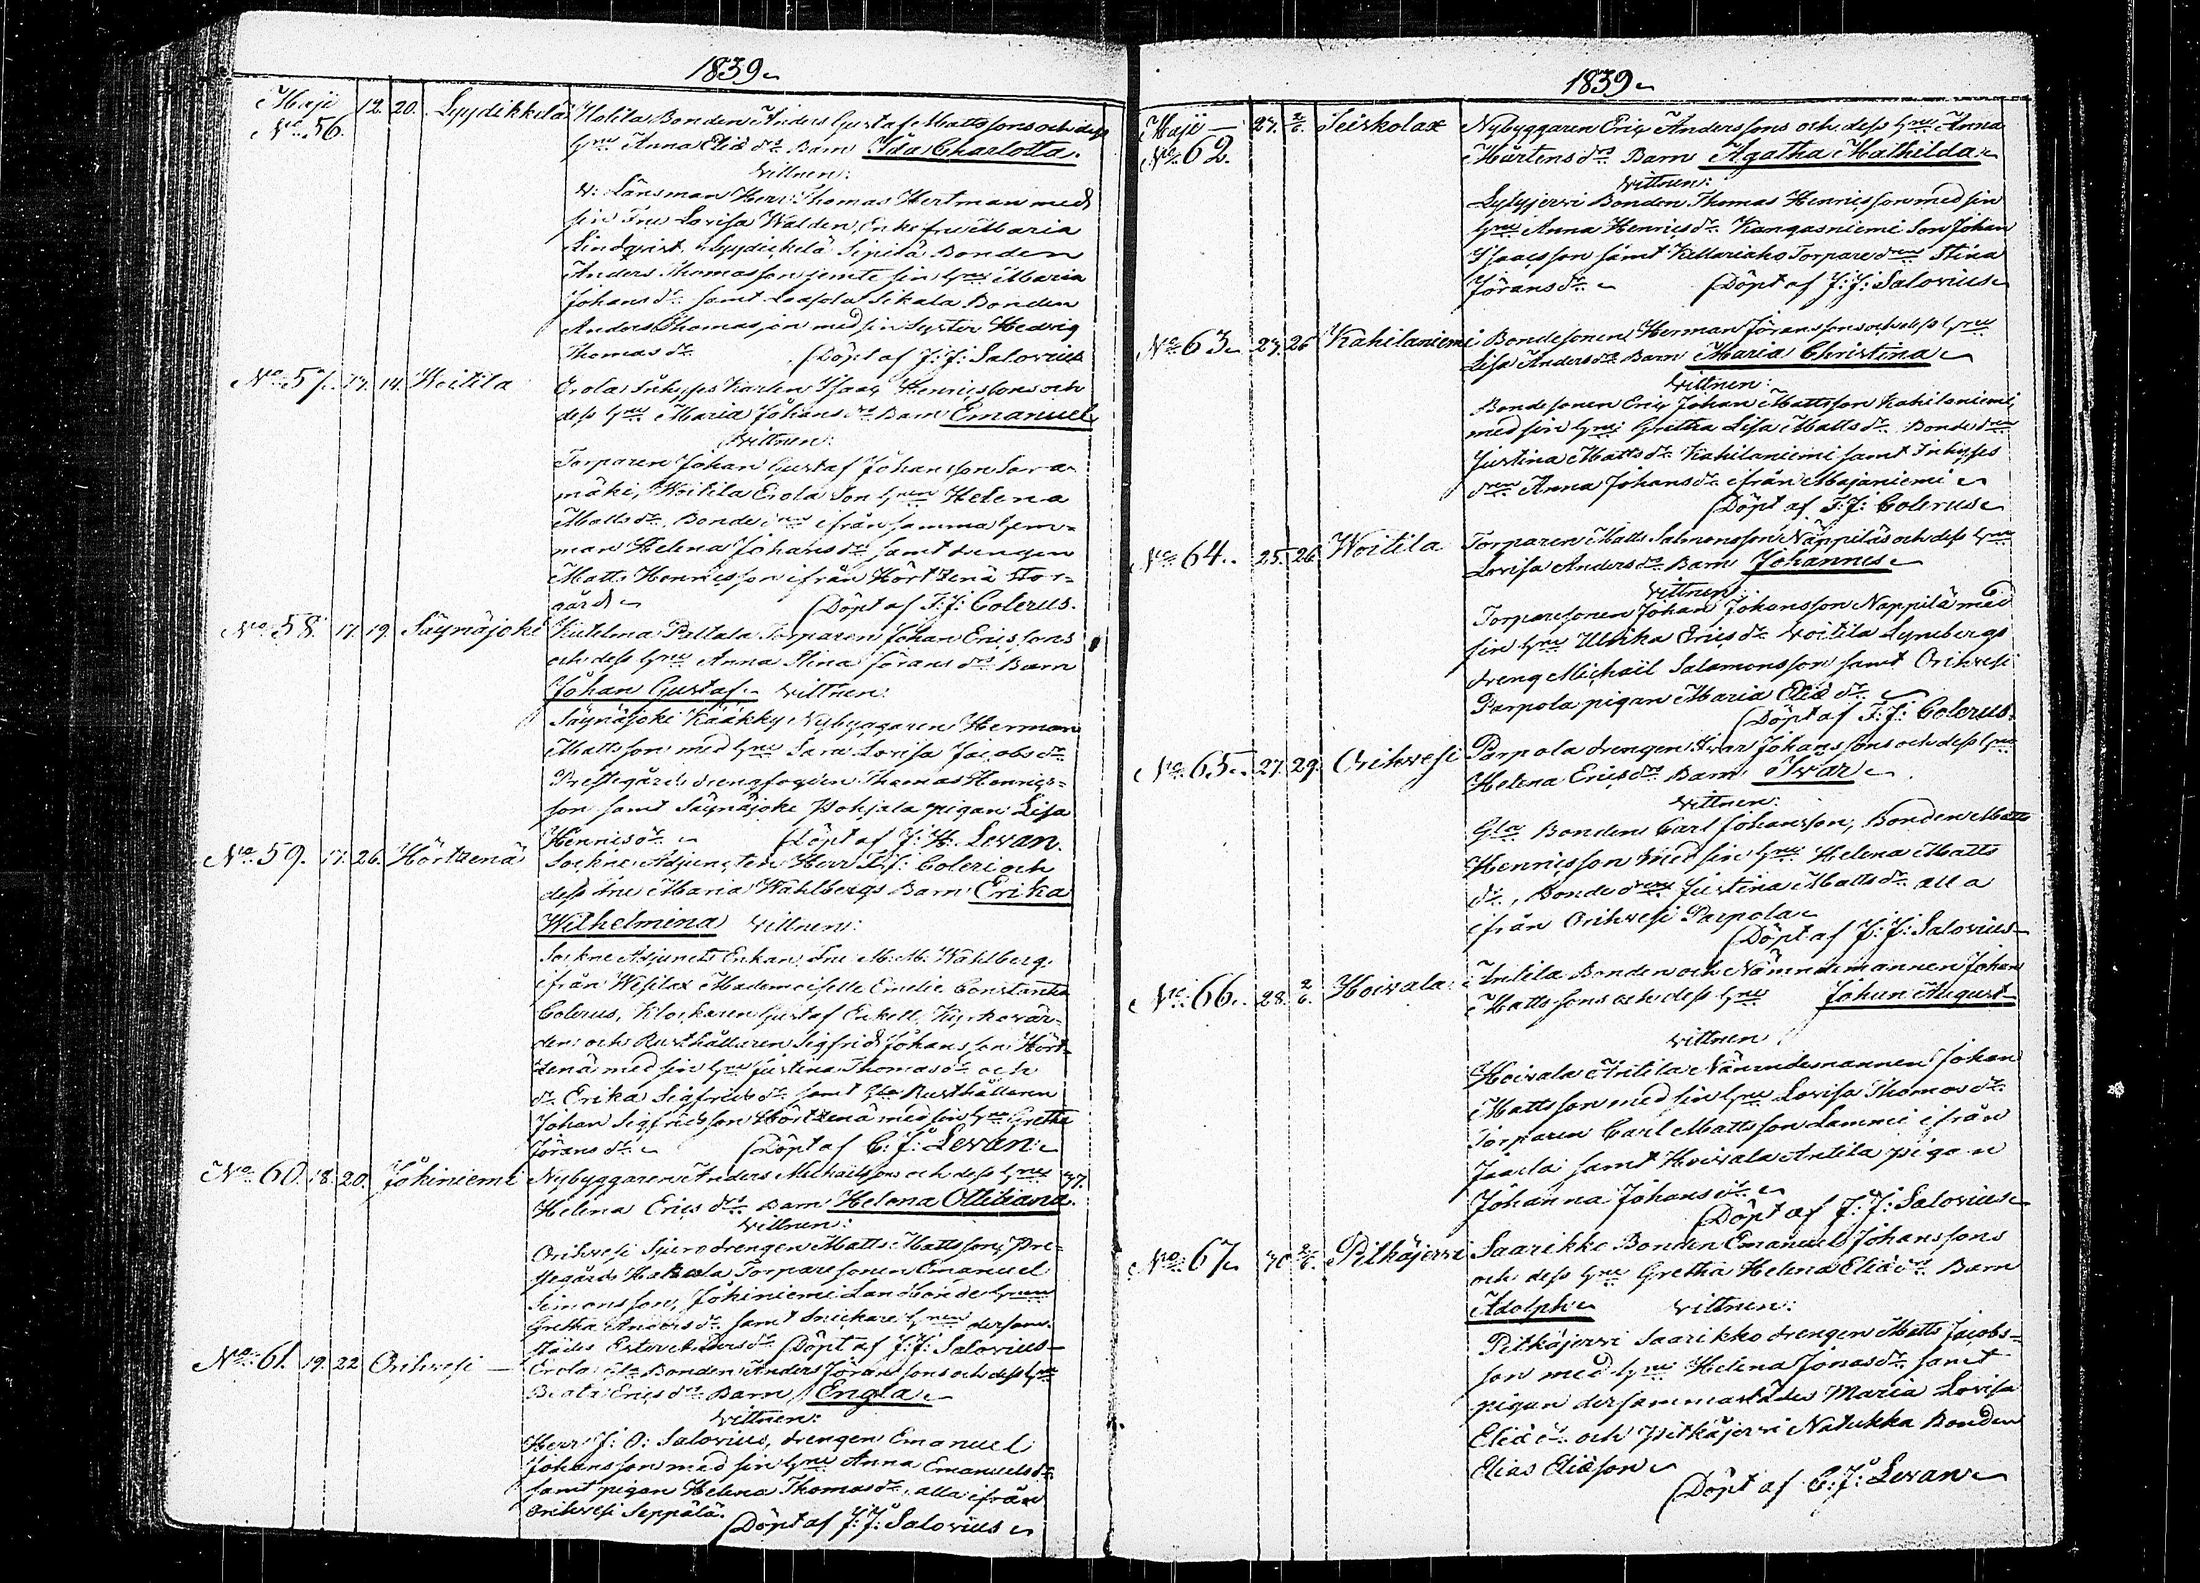 1839
Maji 12. 20. Lyydikkilä Uotila Bonden Anders Gustaf Mattssons och dess
No 56. hru Anna Eliæ dr Barn Ida Charlotta.
vittnen:
v: Länsman Herr Thomas Hertman med
sin Fru Lovisa Walden, Enkefru Maria
Lindqvist, Lyydickelä Sipilä Bonden
Anders Thomasson jemte sin hru Maria
Johans dr samt Sikala Bonden
Anders Thomasson med sin Syster Hedvig
Thomas dr Döpt af J: J: Salovius
No 57. 14. Woitila Erola Inhyses Karlen Isaac Henricssons och
dess hru Maria Johans dr Barn Emanuel
vittnen:
Torparen Johan Gustaf Johansson Sora-
mäki, Woitila Erola Son hrun Helena
Matts dr, Bonde drn ifrån samma hem-
man Helena Johans dr samt drengen
Matts Henricsson ifrån Hörtsenä Stor-
gård Döpt af F: J: Colerus.
No 58. 17. 19. Säynäjoki Kutilma Pettala Torparen Johan Ericssons
och dess hru Anna Stina Jörans drs Barn
Johan Gustaf. vittnen:
Säynäjoki Kääkky Nybyggaren Herman
Mattsson med hru Sara Lovisa Jacobs dr
Prestegårds drengfogden Thomas Henrics-
son samt Säynäjoki Pohjala pigan Lisa
Henrics dr Döpt af J: H: Levan.
No 59. 17. 26. Hörtsenä Sockne Adjuncten Herr F: J: Coleri och
dess Fru Maria Wahlbergs Barn Erika
Wilhelmina vittnen:
Sockne Adjuncts Enkan, Fru M: M: Wahlberg
ifrån Wesilax Mademoiselle Emelie Constantia
Colerus, Klockaren Gustaf Enkell, Kyrkovär-
den och Rusthållaren Sigfrid Johansson Hört-
senä med sin hru Justina Thomas dr och
dr Erika Sigfrids dr samt Gla Rusthållaren
Johan Sigfridsson Hörtsenä med sin hru Gretha
Jörans dr Döpt af C: J: Levan
No 60. 18. 20. Jokiniemi Nybyggaren Anders Michailssons och dess hru 37.
Helena Erics drs Barn Helena Ottiliana.
vittnen:
Orihvesi drengen Matts Mattsson, Pre-
stegårds Hakala Torparesonen Emanuel
Simonsson, Jokiniemi Landbonde hrun
Gretha Anders dr samt Snickare hrun dersam-
städes Ester Anders dr Döpt af J: J: Salovius
No 61. 19. 22. Orihvesi Erola Gla Bonden Anders Jöranssons och dess hru
Beata Erics drs Barn Engla
vittnen:
Herr J: O: Salovius, drengen Emanuel
Johansson med sin hru Anna Emanuels dr
samt pigan Helena Thomas dr, alla ifrån
Orihvesi Seppälä. Döpt af J: J: Salovius
1839
Maji 27. 2/6. Teiskolax Nybyggaren Eric Anderssons och dess hru Anna
No 62. Mårtens drs Barn Agatha Mathilda
vittnen:
Lylyjervi Bonden Thomas Henricsson med sin
hru Anna Henrics dr Kangasniemi Son Johan
Isaacsson samt Torpare drn Stina
Jörans dr Döpt af J: J: Salovius
No 63. 23. 26. Kahilaniemi Bondesonen Herman Jöranssons och dess hru
Lisa Anders drs Barn Maria Christina
vittnen:
Bondesonen Eric Johan Mattsson Kahilaniemi,
med sin hru Gretha Lisa Matts dr Bonde drn
Justina Matts dr Kahilaniemi samt Inhyses
drn Anna Johans dr ifrån Majaniemi
Döpt af F: J: Colerus
No 64. 25. 26. Woitila Torparen Matts Salomonsson Näppiläs och dess hru
Lovisa Anders drs Barn Johannes
vittnen:
Torparesonen Johan Johansson Nappilä med
sin hru Ulrika Erics dr Woitila Lynebergs
dreng Michaël Salomonsson samt Orihvesi
Parpola pigan Maria Eliæ dr
Döpt af F: J: Colerus
No 65. 27. 29. Orihvesi Parpola drengen Ivar Johanssons och dess hru
Helena Erics drs Barn Ivar
vittnen:
Gla Bonden Carl Johansson, Bonden Matts
Henricsson med sin hru Helena Matts
dr, Bonde drn Justina Matts dr alla
ifrån Orihvesi Parpola
Döpt af J: J: Salovius
No 66. 28. 2/6. Hoivala Antila Bonden och Nämndemannen Johan
Mattssons och dess hru Johan August
vittnen
Hoivala Antila Nämndemannen Johan
Mattsson med sin hru Lovisa Thomas dr
Torparen Carl Mattsson Lammi ifrån
samt Hoivala Antila pigan
Johanna Johans dr
Döpt af J: J: Salovius
No 67. 30 2/6. Pitkäjervi Saarikko Bonden Emanuel Johanssons
och dess hru Gretha Helena Eliæ drs Barn
Adolph vittnen:
Pitkäjervi Saarikko drengen Matts Jacobs-
son med hru Helena Jonas dr samt
pigan dersammastädes Maria Lovisa
Eliæ dr och Pitkäjervi Natukka Bonden
Elias Eliæson
Döpt af C: J: Levan